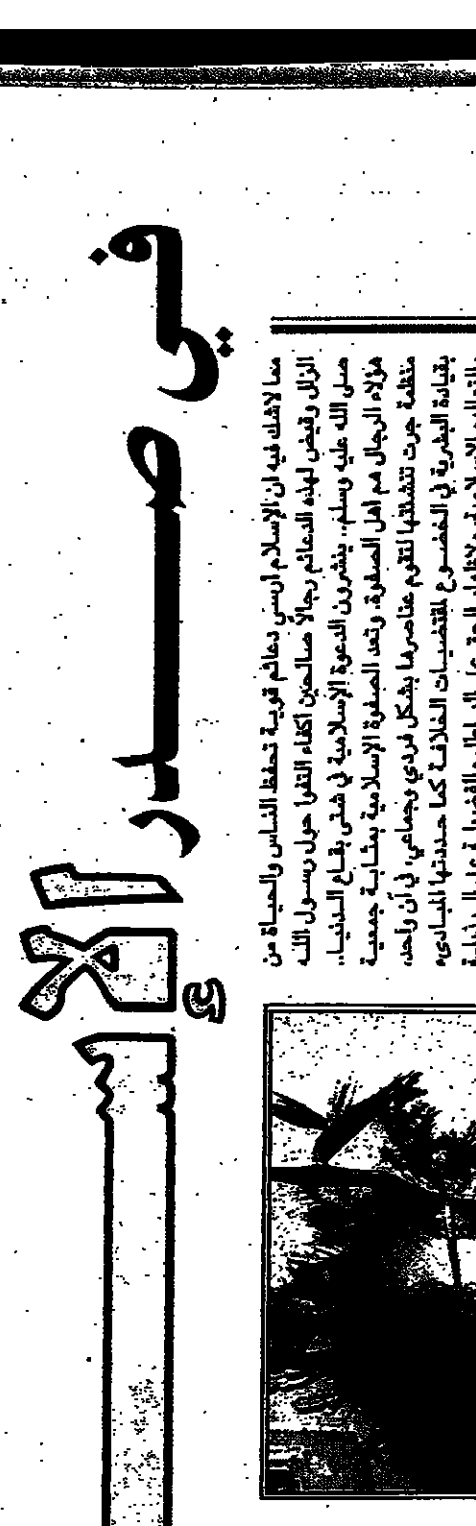 في صدر الإس
مما لاشك فيه ان الإسلام ارسى دعائم قوية تحفظ الناس والحياة من
الزلل وقيض لهذه الدعائم رجالاً صالحين أكفاء التفوا حول رسول الله
صلى الله عليه وسلم.. ينشرون الدعوة الإسلامية في شتى بقاع الدنيا..
هؤلاء الرجال هم أهل الصفوة، وتعد الصفوة الإسلامية بمثابة جمعية
منظمة جرت تنشئتها لتقوم عناصرها بشكل فردي وجماعي، في آن واحد،
بقيادة البشرية في الخضوع لمقتضيات الخلافة كما حددتها المبادىء